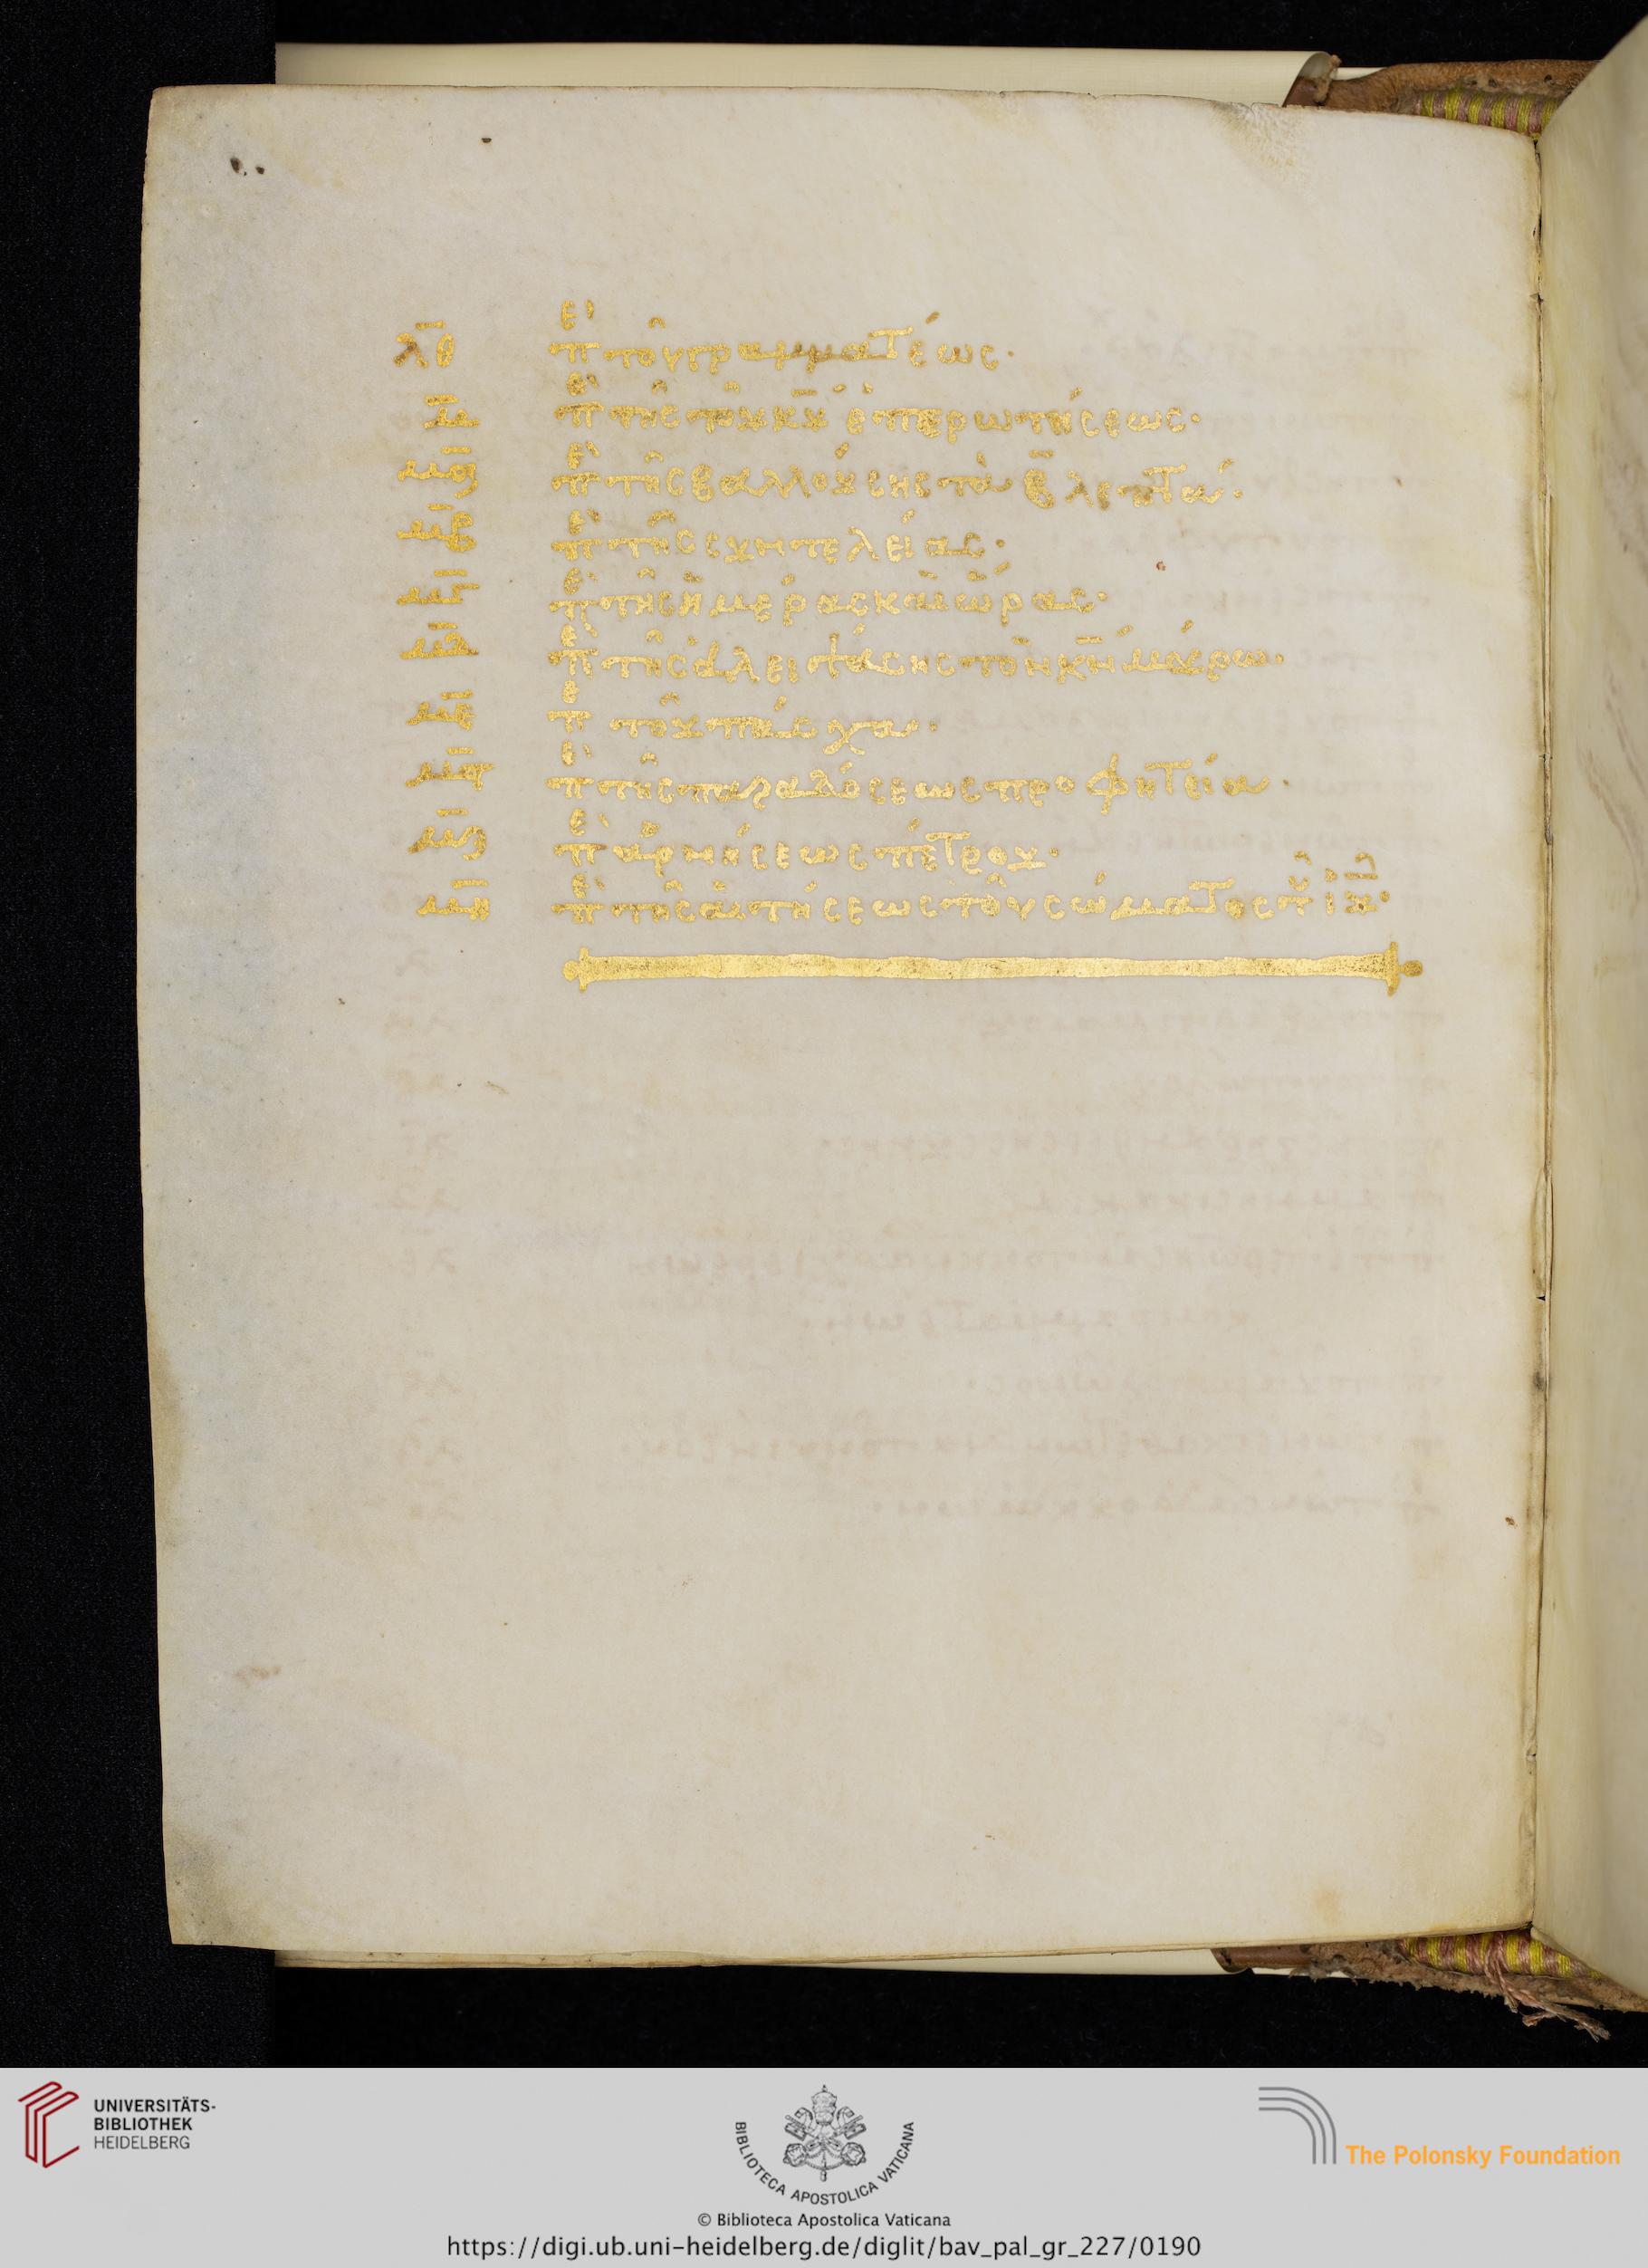 λθ πε τοῦ γραμματέως·
μ πε τῆς τοῦ κῡ ἐπερωτήσεως·
μα πε τῆς βαλλούσης τὰ β λεπτά·
μβ πε τῆς συντελείας·
μγ πε τῆς ἡμέρας καὶ ὥρας·
μδ πε τῆς ἀλειψάσης τὸν κν̄ μύρω·
με πε τοῦ πάσχα·
μϛ πε τῆς παραδόσεως προφητεία·
μζ πε ἀρνήσεως πέτρου·
μη πε τῆς αἰτήσεως τοῦ σώματος τοῦ
UNIVERSITÄTS-
BIBLIOTHEK
HEIDELBERG
BIBLIOTECA APOSTOLICA VATICANA
The Polonsky Foundation
© Biblioteca Apostolica Vaticana
https://digi.ub.uni-heidelberg.de/diglit/bav_pal_gr_227/0190